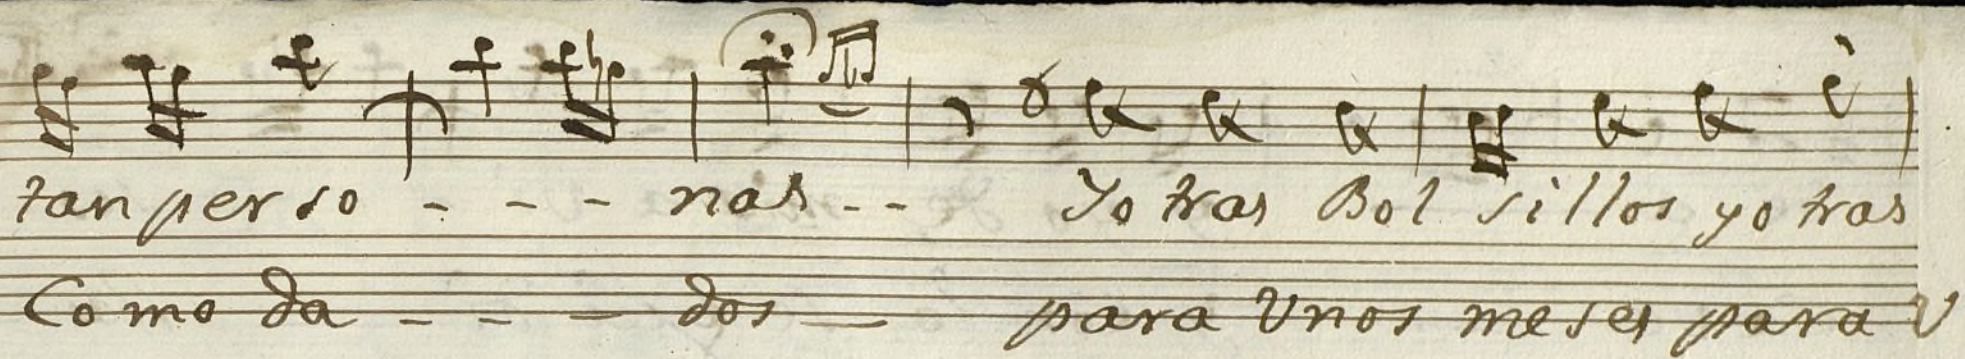 tan perso - - - nas - - Yo tras Bol sillos yo tras
Como da - - - dos — para Unos meses para U